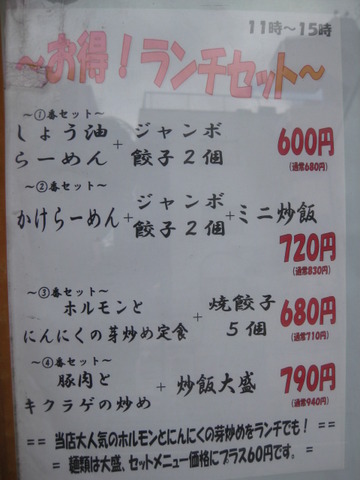 11時～15時
～お得！ランチセット～
～①番セット～
しょう油らーめん + ジャンボ餃子2個 600円
(通常680円)
～②番セット～
かけらーめん + ジャンボ餃子2個 + ミニ炒飯
720円
(通常830円)
～③番セット～
ホルモンと
にんにくの芽炒め定食 + 焼餃子5個 680円
(通常710円)
～④番セット～
豚肉と
キクラゲの炒め + 炒飯大盛 790円
(通常940円)
== 当店大人気のホルモンとにんにくの芽炒めをランチでも！ ==
= 麺類は大盛、セットメニュー価格にプラス60円です。 =